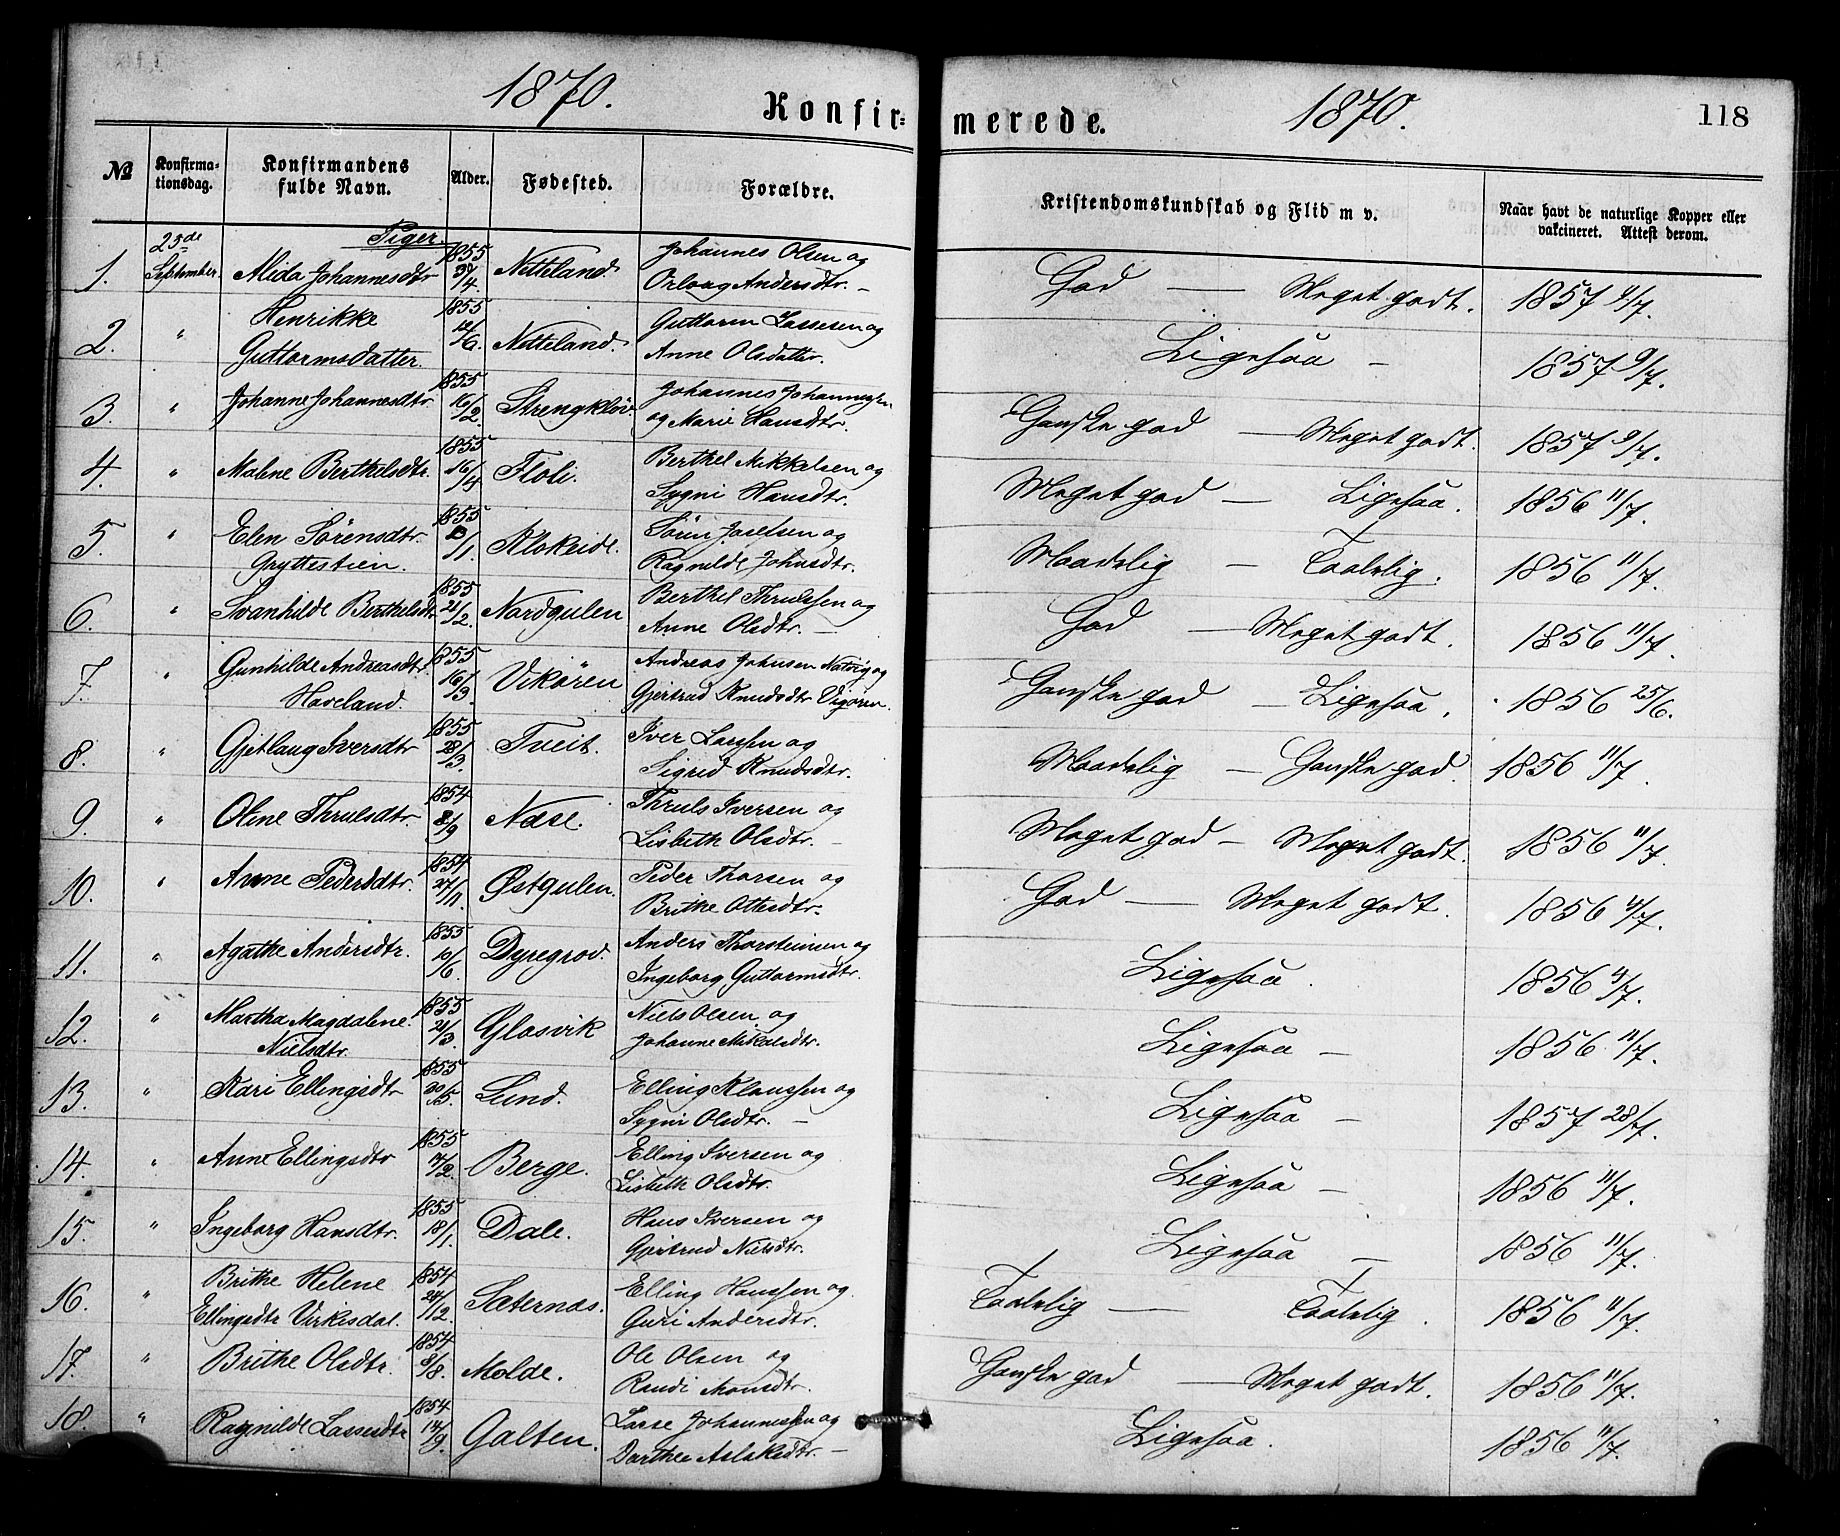 1870. Konfir=
merede. 1870. 118
№ Konfirma-tionsdag. Konfirmandens fulde Navn. Alder. Fødested. Forældre. Kristendomskundskab og Flid m v. Naar havt de naturlige Kopper eller vakcineret. Attest derom.
25de Piger. 1855 Johannes Olsen og
1. September Alida Johannesdtr /4. Nitteland Orloug Andersdtr. – God — Meget godt. 1857 4/7.
Henrikke 1855 Guttorm Lassesen og
2. " Guttormsdatter. 12/6. Nitteland. Anne Olsdatter. Ligesaa – 1857 9/7.
1855 Johannes Johannessen
3. " Johanne Johannesdtr. 16/2. Strengkløv og Marie Hansdtr. Ganske god — Meget godt. 1857 9/7.
1855 Berthel Mikkelsen og
4. " Malene Berthelsdtr. 16/4 Floli. Sygni Hansdtr. Meget god — Ligesaa. 1856 11/7.
Elen Sørensdtr. 1855 Sørin Joelsen og
5. " Gryttestien. /1. Klokeide. Ragnilde Johnsdtr. Maadelig — Taalelig. 1856 11/7.
1855 Berthel Thrulssen og
6. " Svanhilde Berthelsdtr 21/2. Nordgulen Anne Olsdtr. — God — Meget godt. 1856 11/7.
Gunhilde Andreasdtr. 1855 Andreas Johnsen Natvig og
7. " Haveland. 16/3. Vikøren Gjertrud Knudsdtr Vigøren. Ganske god — Ligesaa. 1856 25/6.
1855 Iver Larssen og
8. " Gjetlaug Iversdtr 28/3. Tveit. Sigrid Knudsdtr. Maadelig — Ganske god. 1856 11/7.
1854 Thruls Iversen og
9. " Oline Thrulsdtr. 2/9 Næse. Lisbeth Olsdtr. — Meget god — Meget godt. 1856 11/7.
1854 Peder Thorsen og
10. " Anne Pedersdtr. 27/11. Østgulen. Brithe Ottesdtr. God — Meget godt. 1856 4/7.
1855 Anders Thorsteinsen og
11. " Agathe Andersdtr. 10/6. Dyregrov. Ingeborg Guttormsdtr. Ligesaa. 1856 4/7.
Martha Magdalene 1855 Niels Olsen og
12. " Nielsdtr. 21/3. Glosvik Johanne Mikalsdtr. Ligesaa – 1856 11/7.
1855 Elling Klaussen og
13. " Kari Ellingsdtr 20/5. Lund. Sygni Olsdtr. — Ligesaa – 1857 28/7.
1855 Elling Iversen og
14. " Anne Ellingsdtr 17/2. Berge. Lisbeth Olsdtr. Ligesaa – 1856 11/7.
1855 Hans Iversen og
15. " Ingeborg Hansdtr. 18/1. Dale. Gjertrud Nielsdtr. Ligesaa – 1856 11/7.
Brithe Helene 1854 Elling Hanssen og
16. " Ellingsdtr Virkesdal. 24/12. Sæternæs. Guri Andersdtr. Taalelig — Taalelig. 1856 11/7.
1854 Ole Olsen og
17. " Brithe Olsdtr. 8/8. Molde. Randi Monsdtr. Ganske god — Meget godt. 1856 11/7.
1854 Lasse Johannessen og
18. " Ragnilde Lassesdtr 14/9. Galten. Dorthea Aslaksdtr. — Ligesaa. 1856 11/7.